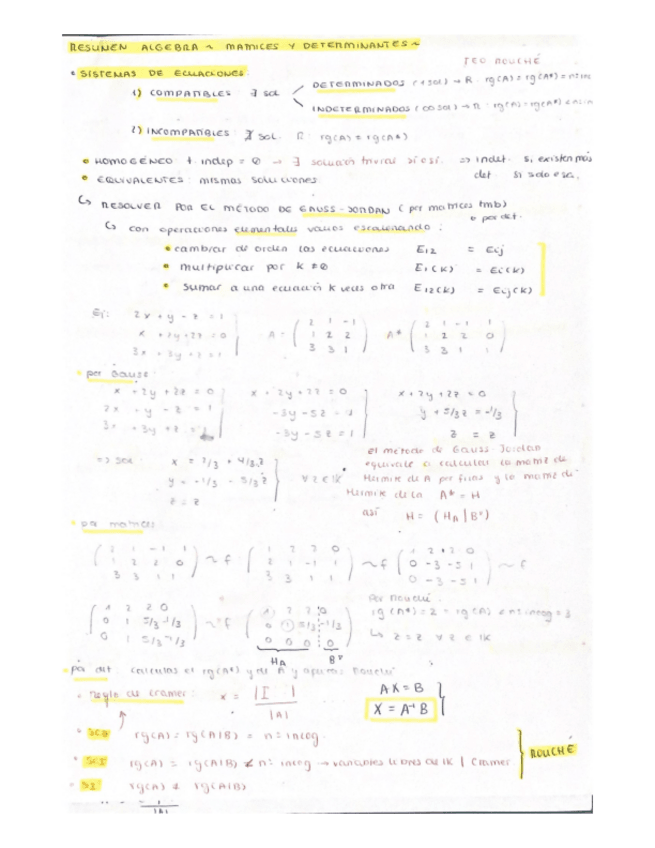 RESUMEN ALGEBRA ~ MATRICES Y DETERMINANTES ~
TEO ROUCHÉ
• SISTEMAS DE ECUACIONES:
1) COMPATIBLES ∃ sol
DETERMINADOS (1 sol) → R: rg(A) = rg(A*) = nºinc
INDETERMINADOS (∞ sol) → R: rg(A) = rg(A*) <
2) INCOMPATIBLES ∄ sol. R: rg(A) ≠ rg(A*)
• HOMOGÉNEO t. indep = 0 → ∃ solución trivial sí o sí. => indet. si existen más
• EQUIVALENTES: mismas soluciones det. si solo esa.
↳ RESOLVER POR EL MÉTODO DE GAUSS-JORDAN (por matrices tmb)
o por det.
↳ con operaciones elementales vamos escalonando:
• cambiar de orden las ecuaciones E12 = Eij
• multiplicar por k ≠ 0 E1(k) = Ei(k)
• sumar a una ecuación k veces otra E12(k) = Eij(k)
Ej: 2x + y - z = 1
x + 2y + 2z = 0
3x + 3y + z = 1
A = ( 2 1 -1 / 1 2 2 / 3 3 1 ) A* ( 2 1 -1 1 / 1 2 2 0 / 3 3 1 1 )
• por Gauss:
x + 2y + 2z = 0 x + 2y + 2z = 0 x + 2y + 2z = 0
2x + y - z = 1 -3y - 5z = 1 y + 5/3 z = -1/3
3x + 3y + z = 1 -3y - 5z = 1 z = z
=> sol: x = 2/3 + 4/3 z
y = -1/3 - 5/3 z ∀ z ∈ K
z = z
• el método de Gauss-Jordan
equivale a calcular la matriz de
Hermite de A por filas y la matriz de
Hermite de la A* = H
así H = (HA | B')
• por matrices:
( 2 1 -1 1 / 1 2 2 0 / 3 3 1 1 ) ~f ( 1 2 2 0 / 2 1 -1 1 / 3 3 1 1 ) ~f ( 1 2 2 0 / 0 -3 -5 1 / 0 -3 -5 1 ) ~f
( 1 2 2 0 / 0 1 5/3 -1/3 / 0 1 5/3 -1/3 ) ~f ( 1 2 2 0 / 0 1 5/3 -1/3 / 0 0 0 0 )
HA B'
Por Rouché:
rg(A*) = 2 = rg(A) < nº incog = 3
↳ z = z ∀ z ∈ K
• por det: calculas el rg(A*) y de A y aplicas Rouché
• Regla de Cramer: x = | I | / |A|
AX = B
X = A⁻¹ B
• SCD rg(A) = rg(A|B) = nº incog.
• SCI rg(A) = rg(A|B) < nº incog → variables libres de K | Cramer
• SI rg(A) ≠ rg(A|B)
ROUCHÉ
|A|